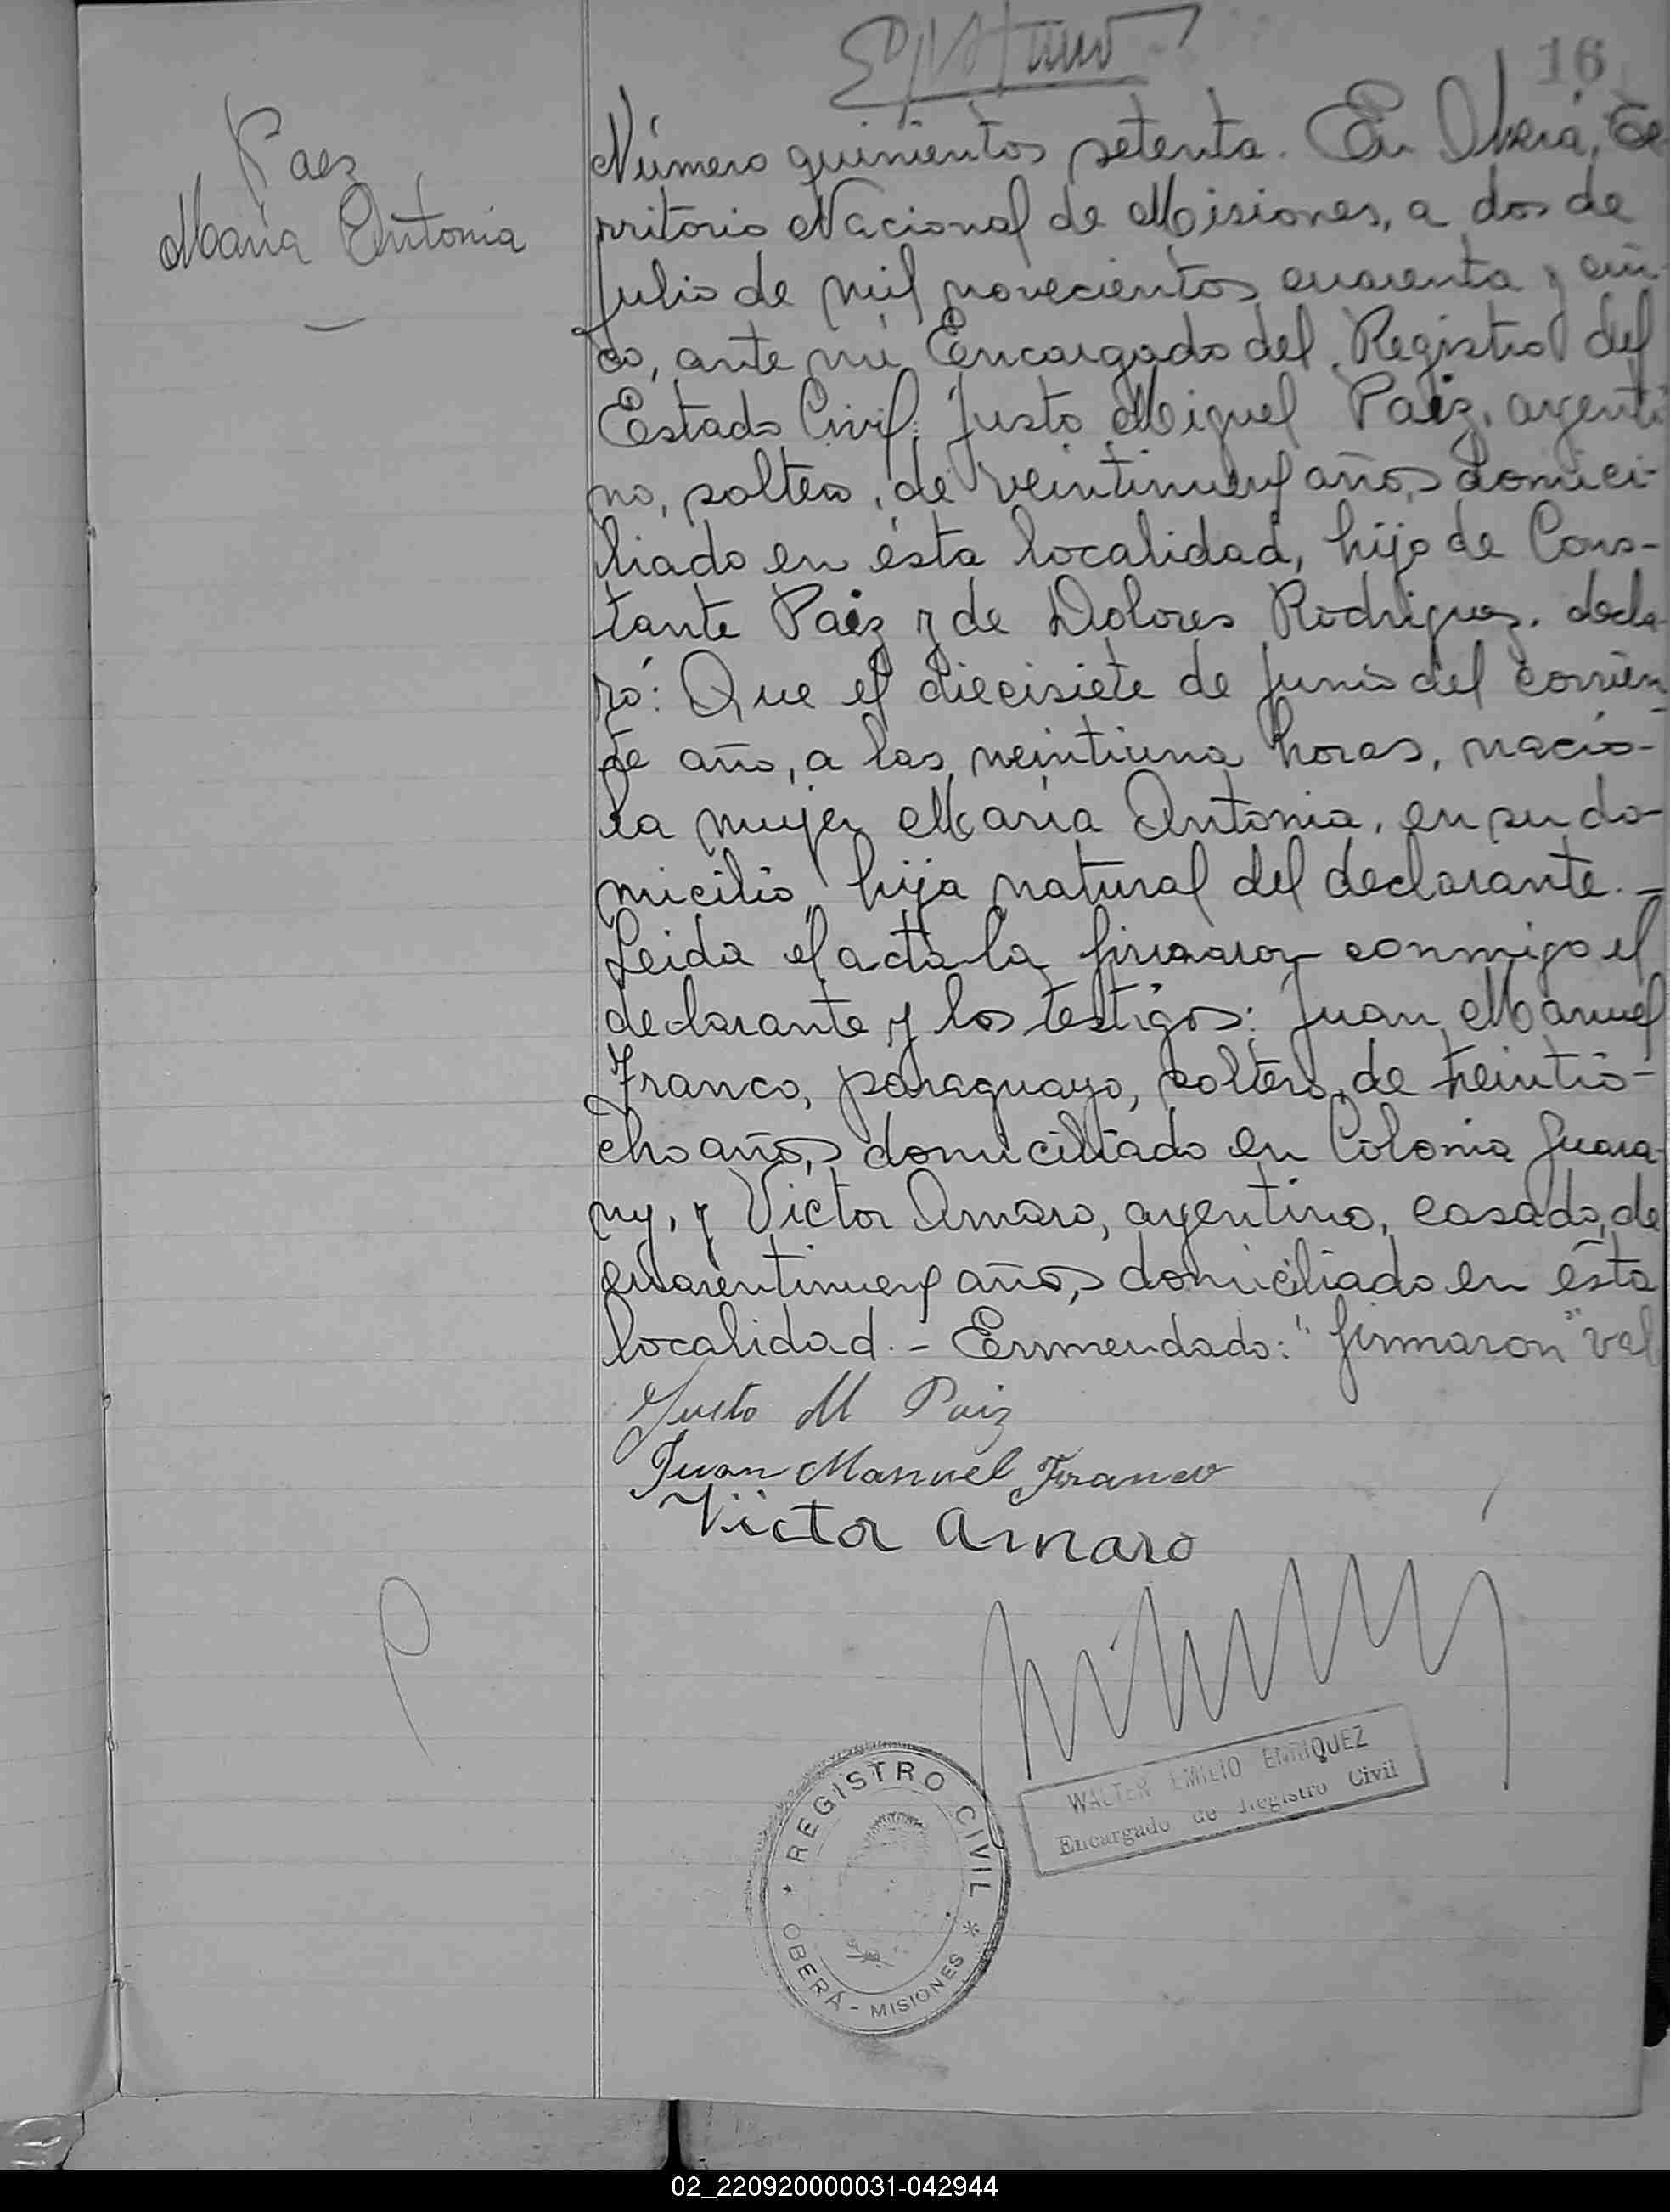 16
Paez
María Antonia
Número quinientos setenta. En Oberá, Te-
rritorio Nacional de Misiones, a dos de
Julio de mil novecientos cuarenta y cin-
co, ante mí Encargado del Registro del
Estado Civil, Justo Miguel Paiz, argenti
no, soltero, de veintinueve años, domici-
liado en ésta localidad, hijo de Cons-
tante Paiz y de Dolores Rodriguez, decla-
ró: Que el diecisiete de Junio del corrien
te año, a las veintiuna horas, nació-
la mujer María Antonia, en su do-
micilio, hija natural del declarante.-
Leida el acta la firmaron conmigo el
declarante y los testigos: Juan Manuel
Franco, paraguayo, soltero, de treintio-
cho años, domiciliado en Colonia Guara-
ny, y Víctor Amaro, argentino, casado, de
cuarentinueve años, domiciliado en ésta
localidad.- Enmendado: "firmaron" vale
Justo M Paiz
Juan Manuel Franco
Victor Amaro
WALTER EMILIO ENRIQUEZ
Encargado de Registro Civil
* REGISTRO CIVIL *
OBERÁ - MISIONES
02_220920000031-042944